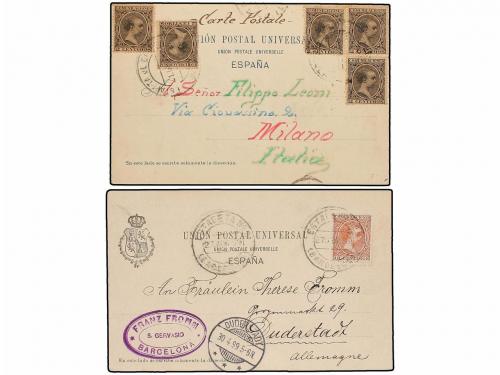 Carte Postale
UNIÓN POSTAL UNIVERSAL
UNION POSTALE UNIVERSELLE
ESPAÑA
Al Señor Filippo Leoni
Milano
Italia
En este lado se escribe solamente la dirección.
UNIÓN POSTAL UNIVERSAL
UNION POSTALE UNIVERSELLE
ESPAÑA
An Fräulein Therese Fromm
29
Duderstadt
Allemagne
FRANZ FROMM
S. GERVASIO
BARCELONA
DUDERSTADT
30 4 99 5-6N.
En este lado se escribe solamente la dirección.